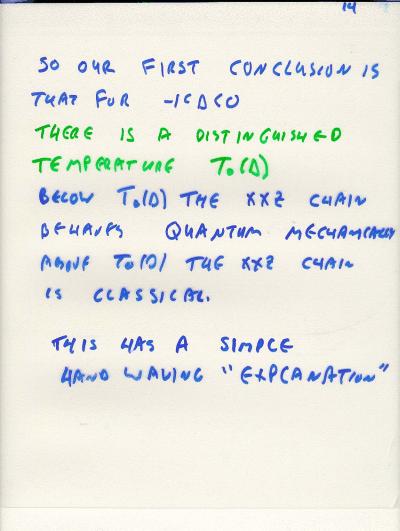 14
SO OUR FIRST CONCLUSION IS
THAT FOR -1<Δ<0
THERE IS A DISTINGUISHED
TEMPERATURE T₀(Δ)
BELOW T₀(Δ) THE XXZ CHAIN
BEHAVES QUANTUM MECHANICALLY
ABOVE T₀(Δ) THE XXZ CHAIN
IS CLASSICAL.
THIS HAS A SIMPLE
HAND WAVING "EXPLANATION"